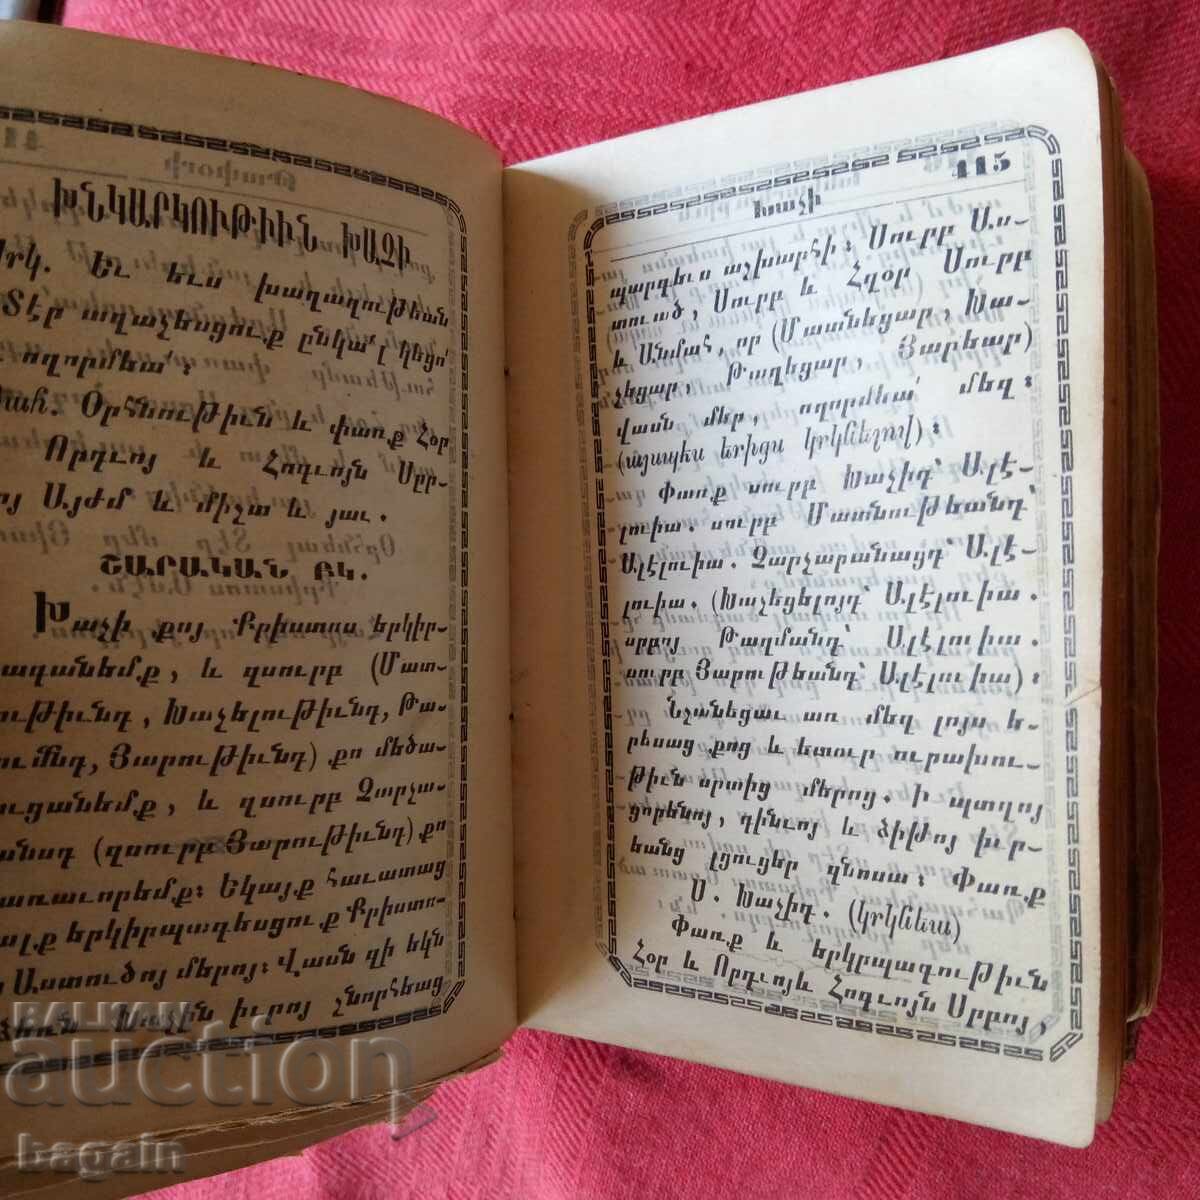 ԽՆԿԱՐԿՈՒԹԻԻՆ ԽԱՉԻ
Եւ եւս խաղաղութեան
Տէր աղաչեսցուք ընկա՛լ կեցո՛
ողորմեա՛։
Օրհնութիւն և փառք Հօր
Որդւոյ և Հոգւոյն Սըր-
Այժմ և միշտ և յաւ.
ՇԱՐԱԿԱՆ ԲԿ.
Խաչի քոյ Քրիստոս երկիր-
պագանեմք, և զսուրբ (Մատ-
ութիւնդ, Խաչելութիւնդ, Թա-
Յարութիւնդ) քո մեծա-
ուցանեմք, և զսուրբ Չարչա-
անսդ (զսուրբ Յարութիւնդ) քո
առաւորեմք։ Եկայք հաւատացեալք
երկիրպագեսցուք Քրիստո-
Աստուծոյ մերոյ։ Վասն զի եկն
Խաչին իւրոյ շնորհեաց
115
Խաչի
պարգեւս աշխարհի։ Սուրբ Աս-
տուած, Սուրբ և Հզօր Սուրբ
և Անմահ, որ (Մատնեցար, Խա-
չեցար, Թաղեցար, Յարեար)
վասն մեր, ողորմեա՛ մեզ։
(այսպես երիցս կրկնելով)։
Փառք սուրբ Խաչիդ՝ Ալէ-
լուիա. սուրբ Մատնութեանդ՝
Ալէլուիա. Չարչարանացդ՝ Ալէ-
լուիա. (Խաչեցելոյդ՝ Ալէլուիա.
սրբոյ Թաղմանդ՝ Ալէլուիա.
սուրբ Յարութեանդ՝ Ալէլուիա)։
Նշանեցաւ առ մեզ լոյս ե-
րեսաց քոց և ետուր ուրախու-
թիւն սրտից մերոց. ի պտղոյ
ցորենոյ, գինւոյ և ձիթոյ իւր-
եանց լցուցեր զնոսա։ Փառք
Ս. Խաչիդ. (կրկնեա)
Փառք և երկրպագութիւն
Հօր և Որդւոյև Հոգւոյն Սրբոյ,
BALKAN
auction
bagain